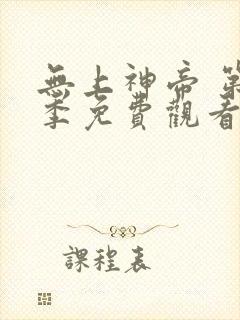 無上神帝 第
季免費觀看
課程表